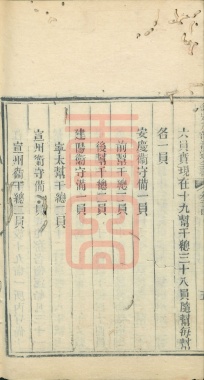 六員實現在十九幫千總三十八員隨幫每幫
各一員
安慶衞守備一員
前幫千總二員
後幫千總二員
建陽衞守備一員
寧太幫千總二員
宣州衞守備一員
宣州衞千總二員